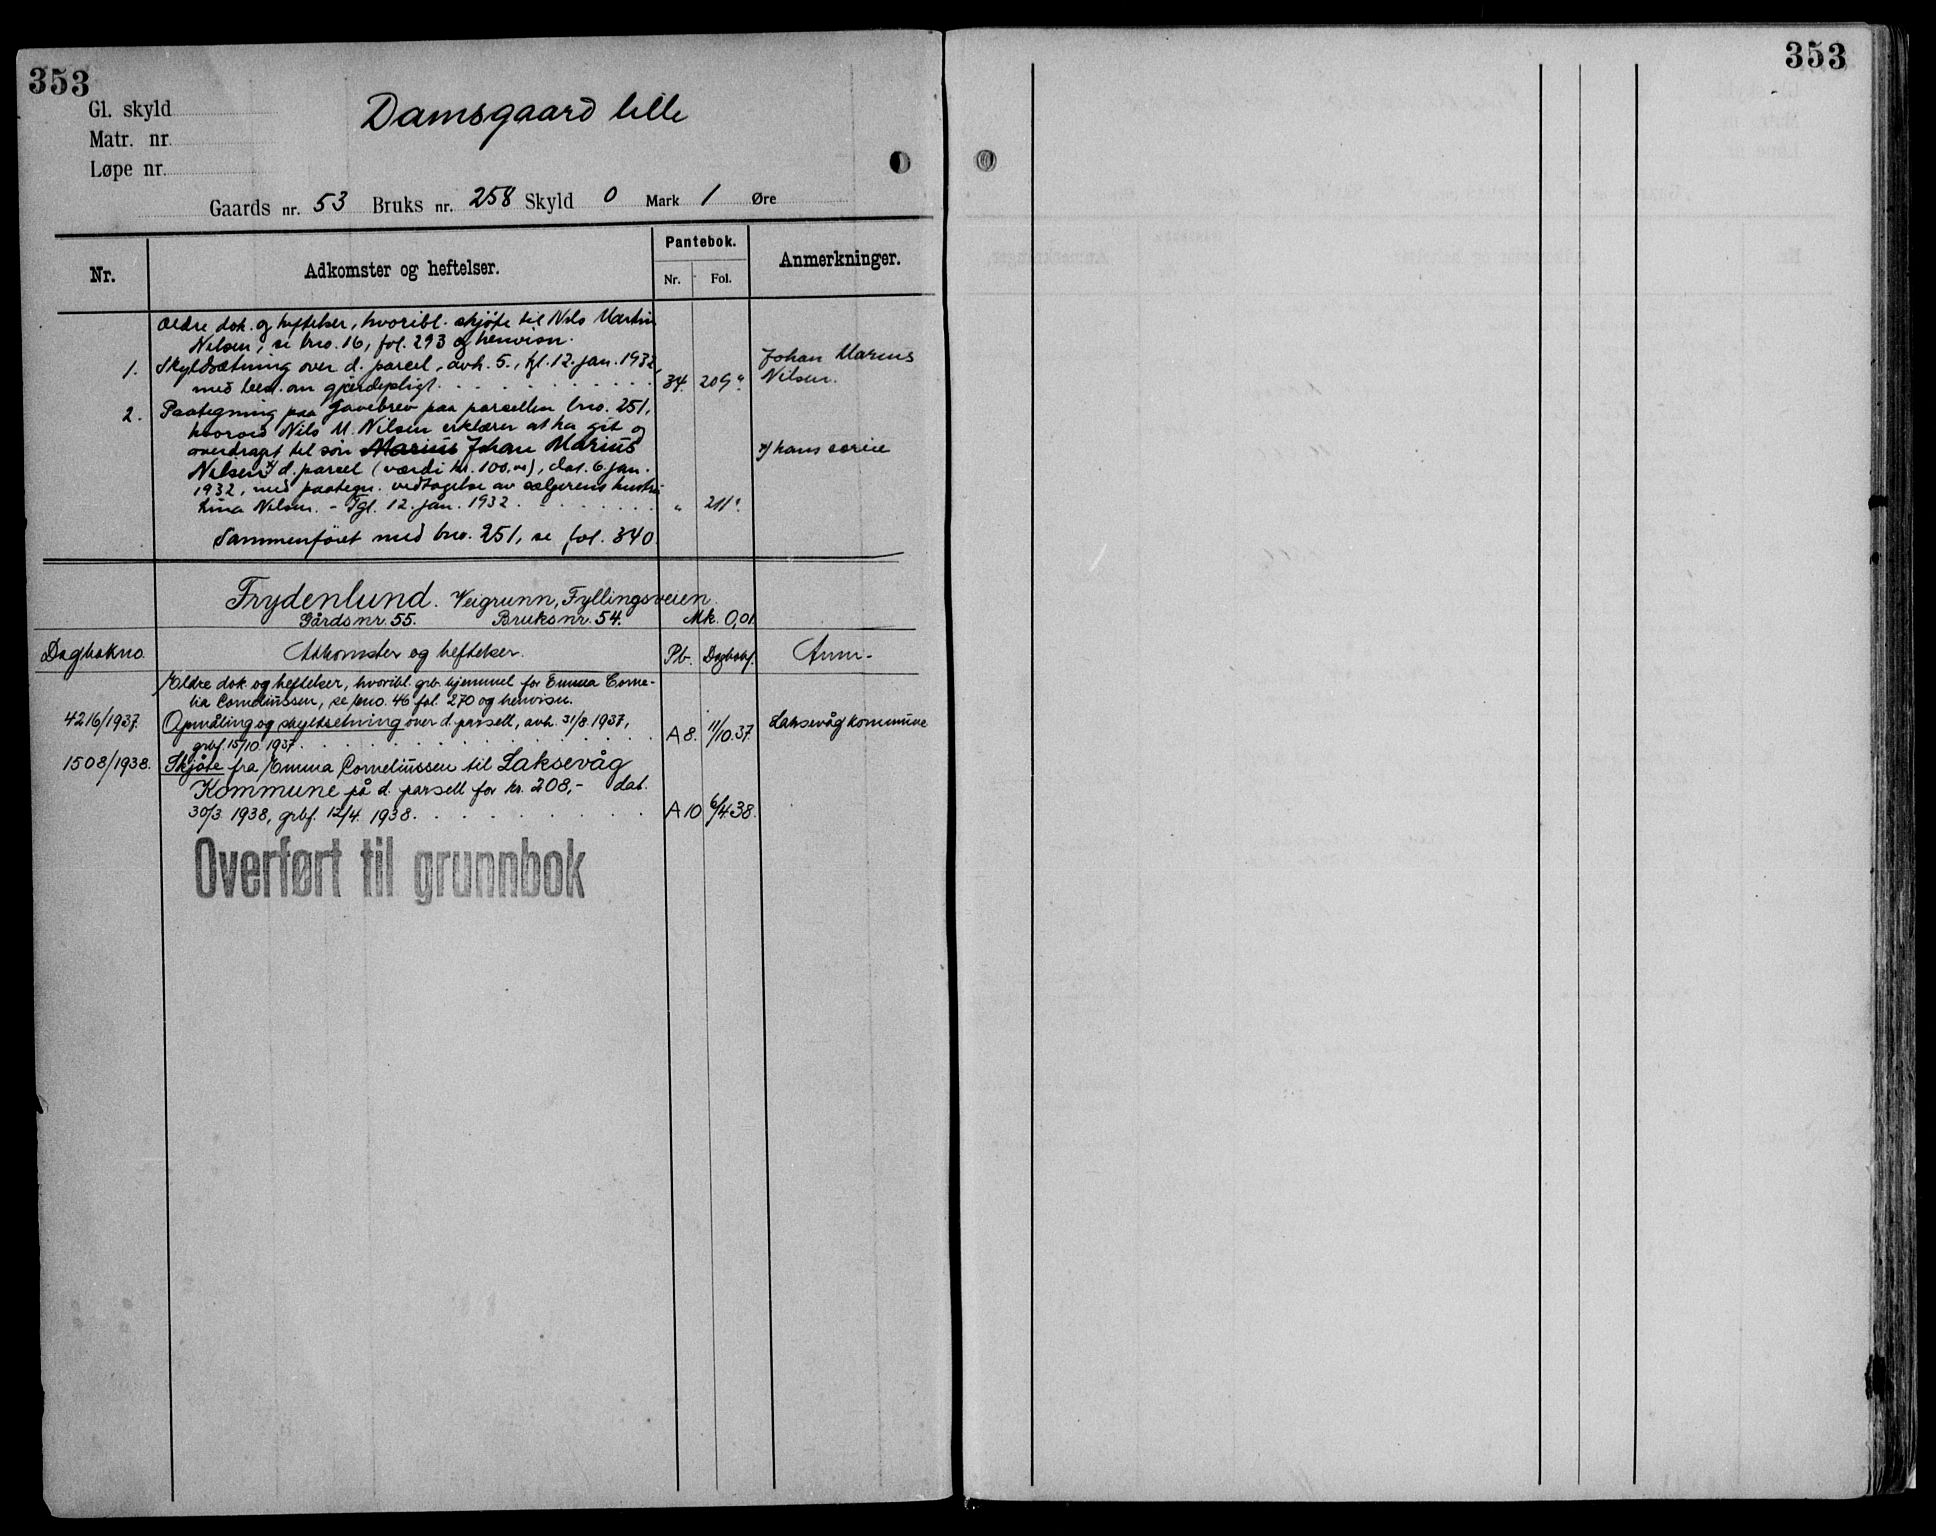 353
353
Gl. skyld
Matr. nr.
Løpe nr.
Damsgaard lille
Gaards nr. 53 Bruks nr. 258 Skyld 0 Mark 1 Øre
Nr.
Adkomster og heftelser.
Pantebok.
Nr.
Fol.
Anmerkninger.
Ældre dok. og heftelser, hvoribl. skjøte til Nils Martin
Nilsen, se bno. 16, fol. 293 og henvisn.
1. Skyldsætning over d. parcel, avh. 5., tgl. 12. jan. 1932,
med best. om gjerdepligt. 34. 209ª
Johan Marius
Nilsen.
2. Paategning paa Gavebrev paa parsellen bno. 251,
hvorved Nils M. Nilsen erklærer at ha git og
overdraget til søn Marius Johan Marius
Nilsen x) d. parcel (værdi kr. 100,00), dat. 6. jan.
1932, med paategn. vedtagelse av sælgerens hustru
Lina Nilsen. - Tgl. 12. jan. 1932. " 211ª
x) hans særeie
Sammenføiet med bno. 251, se fol. 340
Frydenlund. Veigrunn, Fyllingsveien.
Gårdsnr. 55. Bruksnr. 54. Mk. 0,01
Dagbokno. Adkomster og heftelser. Pb. Dagbokf. Anm.
Ældre dok. og heftelser, hvoribl. grb. hjemmel for Emma Corne-
lia Corneliussen, se bno. 46 fol. 270 og henvisn.
4216/1937. Opmåling og skyldsetning over d. parsell, avh. 31/8 1937,
grbf. 15/10 1937. A 8. 11/10.37. Laksevåg kommune
1508/1938. Skjøte fra Emma Corneliussen til Laksevåg
Kommune på d. parsell for kr. 208,- dat.
30/3 1938, grbf. 12/4. 1938. A 10 6/4 38.
Overført til grunnbok